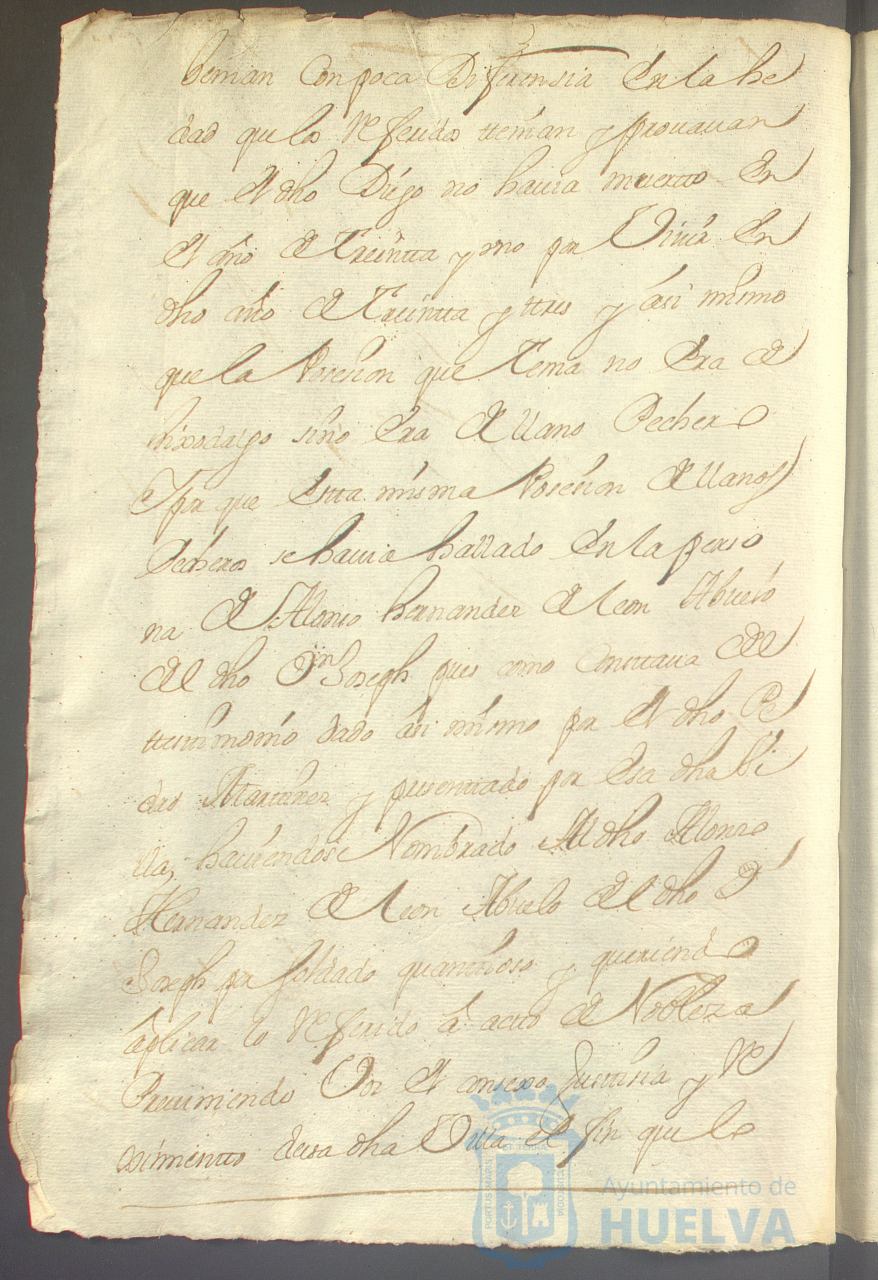 benian Con poca Diferensia En la he
dad que los Referidos ttenian y provavan
que El dho Diego no havia muertto En
El año de Treintta y uno por Vivir En
dho año de Treintta y ttres y asi mismo
que la Posesion que Tenia no Era de
hixodalgo sino Era de llano Pechero
Y por que Estta misma Posesion de llanos
Pecheros se havia hallado En la perso
na de Alonso hernandez de leon Abuelo
del dho Dn Joseph pues como Consttava del
ttesttimonio dado asi mismo por El dho Pe
dro Martinez y presenttado por Esa dha Vi
lla, haviendose Nombrado Al dho Alonso
Hernandez de leon Abuelo del dho Dn
Joseph por soldado quantioso y queriendo
aplicar lo Referido a acto de Nobleza
Previniendo Por El consexo Justisia y Re
ximientto de esa dha Villa el fin que lo
Ayuntamiento de
HUELVA